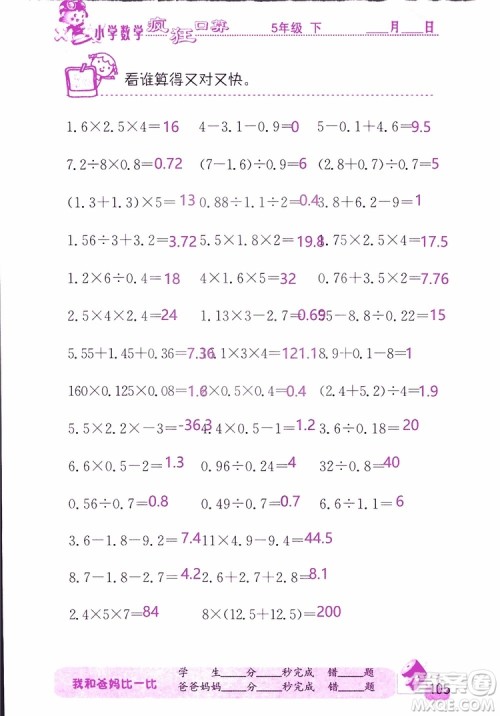 小学数学 疯狂口算 5年级 下 ___月___日
看谁算得又对又快。
1.6×2.5×4=16 4-3.1-0.9=0 5-0.1+4.6=9.5
7.2÷8×0.8=0.72 (7-1.6)÷0.9=6 (2.8+0.7)÷0.7=5
(1.3+1.3)×5=13 0.88÷1.1÷2=0 3.8+6.2-9=1
1.56÷3+3.2=3.72 5.5×1.8×2=19.8 1.75×2.5×4=17.5
1.2×6÷0.4=18 4×1.6×5=32 0.76+3.5×2=7.76
2.5×4×2.4=24 1.13-8.8÷20=0.69 55-8.8÷0.22=15
5.55+1.45+0.36=7.36 .1×0.5×4=121.1 8.9+0.1-8=1
160×0.125×0.08=1.6 ×0.5×0.5=0.4 (2.4+5.2)÷4=1.9
5.5×2.2×-3=-36.3 4.4×0.5-1=1.2 0.36÷0.018=20
2.6-1.8+0.5=1.3 0.96÷0.24=4 32÷0.08=400
0.56÷0.7=0.8 0.49÷0.7=0.7 6.6÷1.1=6
3.6-1.8-9.2=7.4 11×4.9-9.4=44.5
7.2+4.1-3.2=8.1 5.8+2.4÷8=8.1
2.4×5×7=84 8×(2.4÷0.6)=200
我和爸妈比一比
学 生___分___秒完成 错___题
爸爸妈妈___分___秒完成 错___题
105
答案圈
MXQE.COM